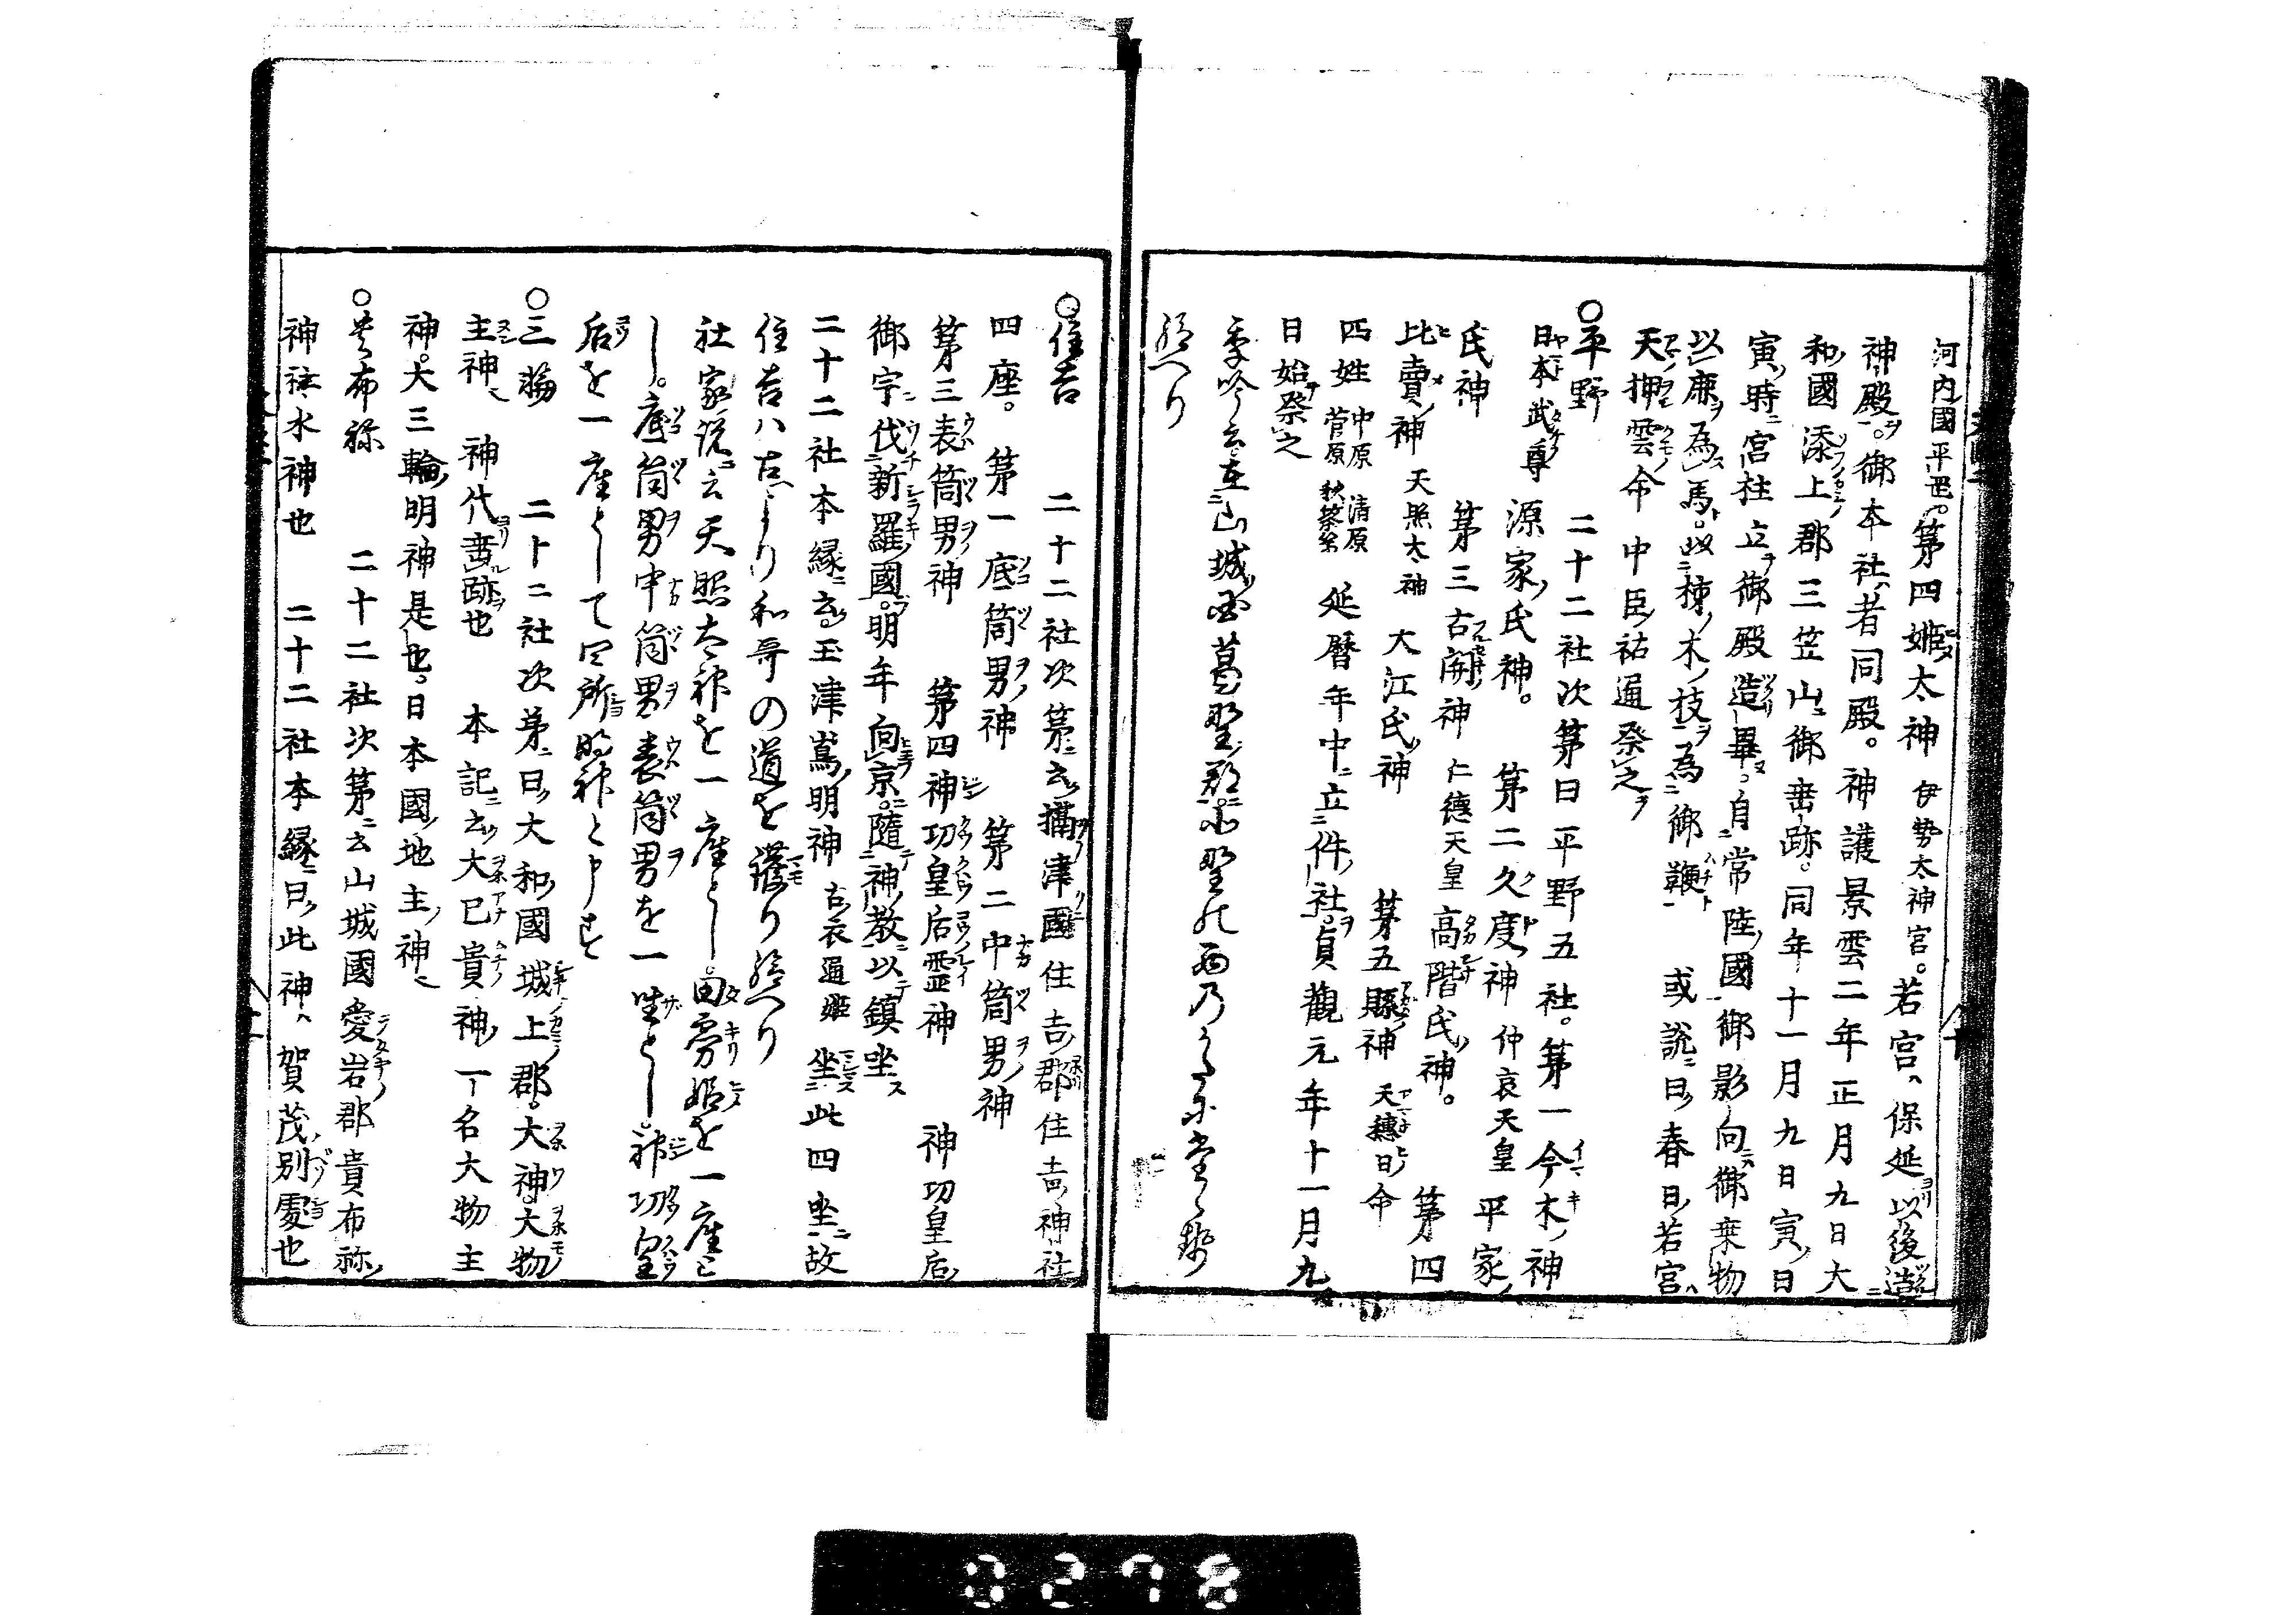 河内國平岡。第四姫太神 伊勢太神宮。若宮ハ保延以後造
神殿。御本社者同殿。神護景雲二年正月九日大
和國添上郡三笠山御垂跡。同年十一月九日寅日
寅時宮社立御殿造畢。自常陸國御影向御乗物
以鹿為馬。以柿木枝為御鞭 或説曰春日若宮ハ
天押雲命中臣祐通祭之
○平野 二十二社次第曰平野五社。第一今木神
日本武尊 源家氏神。第二久度神 仲哀天皇 平家
氏神 第三古開神 仁德天皇 高階氏神。第四
比賣神 天照太神 大江氏神 第五縣神 天穗日命
四姓 中原 清原 菅原 秋篠 延暦年中立件社。貞觀元年十一月九
日始祭之
季吟云在山城國葛野郡
給へり
○住吉 二十二社次第云攝津國住吉郡住吉神社
四座。第一底筒男神 第二中筒男神
第三表筒男神 第四神功皇后霊神 神功皇后
御宇伐新羅國。明年向京。隨神教以鎮坐
二十二社本緣云玉津嶌明神 古衣通姫 坐此四坐故
住吉ハ古より和哥の道を護り給へり
社家説云天照太神を一座とし田霧姫を一座と
し。底筒男中筒男表筒男を一坐とし。神功皇
后を一座として四所明神と申す
○三輪 二十二社次第曰大和國城上郡。大神大物
主神ハ 神代垂跡也 本記云大己貴神一名大物主
神。大三輪明神是也。日本國地主神ハ
○貴布祢 二十二社次第云山城國愛宕郡貴布祢
神社水神也 二十二社本緣曰此神ハ賀茂別處也
0278